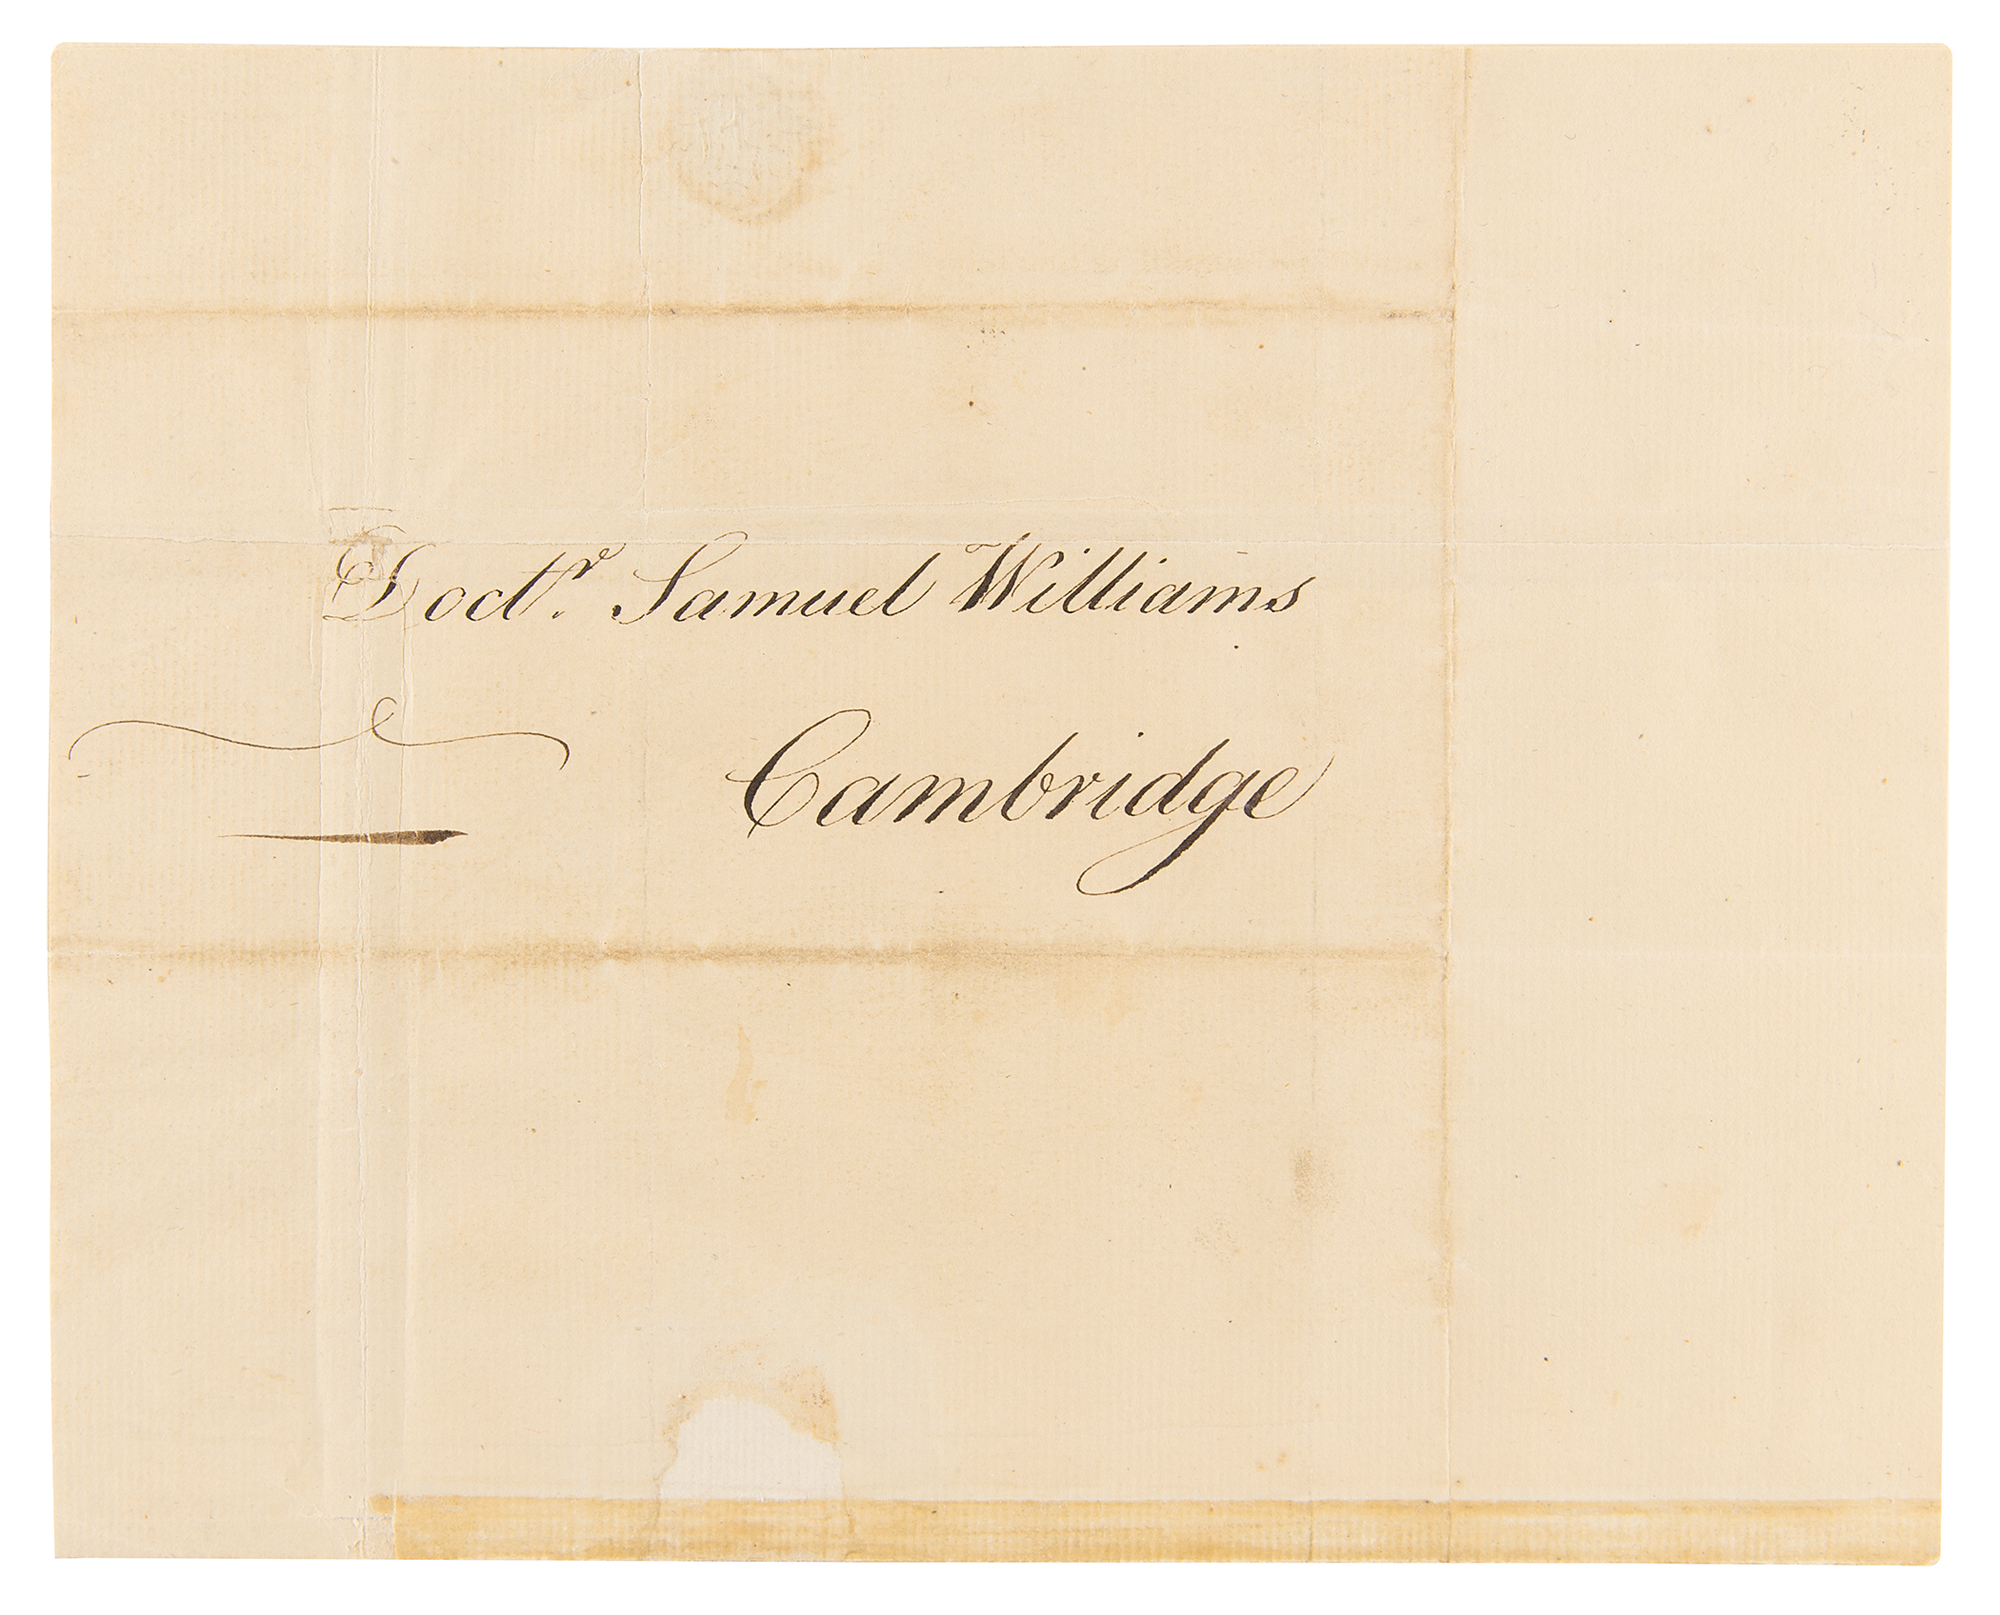 Doctr. Samuel Williams
Cambridge